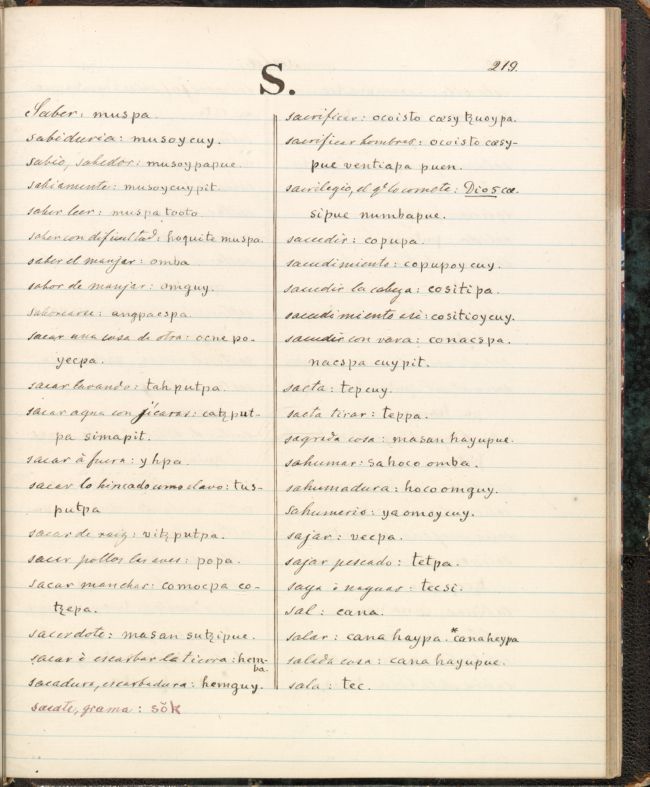 219.
S.
Saber: muspa.
sabiduria: musoycuy.
sabio, sabedor: musoypapue.
sabiamente: musoycuypit.
saber leer: muspa tooto.
saber con dificultad: hoquite muspa.
saber el manjar: omba.
sabor de manjar: omguy.
saborearse: angpaespa.
sacar una cosa de otra: ocne po-
yecpa.
sacar lavando: tahputpa.
sacar agua con jícaras: catzput-
pa simapit.
sacar à fuera: yhpa.
sacar lo hincado como clavo: tus-
putpa
sacar de raiz: vitzputpa.
sacar pollos las aves: popa.
sacar manchas: comocpa co-
tzepa.
sacerdote: masan sutzipue.
sacar ò escarbar la tierra: hem-
ba.
sacadura, escarbadura: hemguy.
sacate, grama: sŏk
sacrificar: ocoisto cœsy tzuoypa.
sacrificar hombres: ocoisto cœsy-
pue ventiapa puen.
sacrilegio, el q.e lo comete: Dios cœ
sipue numbapue.
sacudir: copupa.
sacudimiento: copupoycuy.
sacudir la cabeza: cositipa.
sacudimiento asi: cositioycuy.
sacudir con vara: conacspa.
nacspa cuypit.
saeta: tepcuy.
saeta tirar: teppa.
sagrada cosa: masan hayupue.
sahumar: sahoco omba.
sahumadura: hocoomguy.
sahumerio: yaomoycuy.
sajar: vecpa.
sajar pescado: tetpa.
saya ò naguas: tecsi.
sal: cana.
salar: cana haypa. *canaheypa
salada cosa: cana hayupue.
sala: tec.